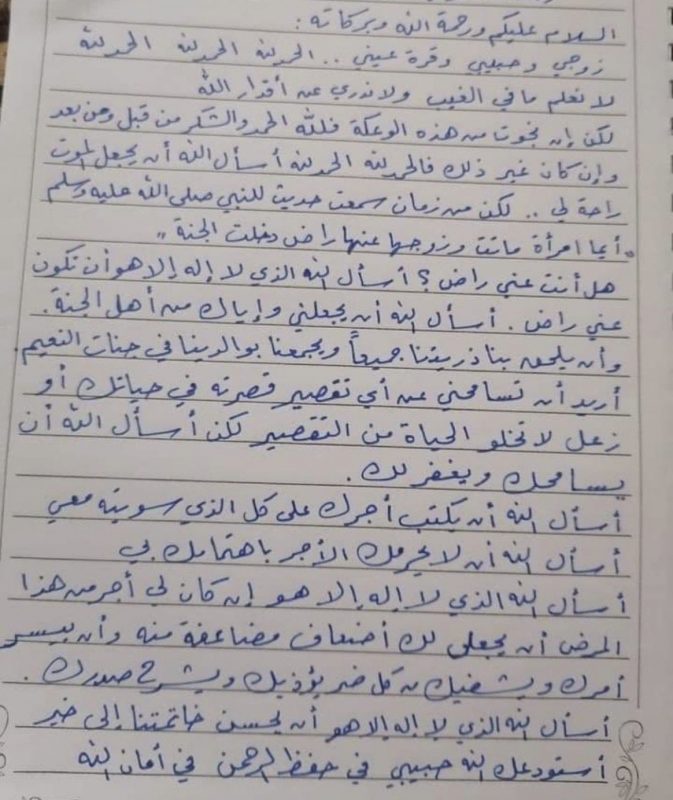 السلام عليكم ورحمة الله وبركاته :
زوجي وحبيبي وقرة عيني .. الحمدلله الحمدلله الحمدلله
لا نعلم ما في الغيب ولا ندري عن أقدار الله
لكن إن نجوت من هذه الوعكة فلله الحمد والشكر من قبل ومن بعد
وإن كان غير ذلك فالحمدلله الحمدلله أسأل الله أن يجعل الموت
راحة لي .. لكن من زمان سمعت حديث للنبي صلى الله عليه وسلم
"أيما امرأة ماتت وزوجها عنها راضٍ دخلت الجنة"
هل أنت عني راض ؟ أسأل الله الذي لا إله إلا هو أن تكون
عني راض . أسأل الله أن يجعلني وإياك من أهل الجنة .
وأن يلحق بنا ذريتنا جميعاً ويجمعنا بوالدينا في جنات النعيم .
أريد أن تسامحني عن أي تقصير قصرته في حياتك أو
زعل لا تخلو الحياة من التقصير لكن أسأل الله أن
يسامحك ويغفر لك .
أسأل الله أن يكتب أجرك على كل الذي سويته معي
أسأل الله أن لا يحرمك الأجر باهتمامك بي
أسأل الله الذي لا إله إلا هو إن كان لي أجر من هذا
المرض أن يجعل لك أضعاف مضاعفة منه وأن ييسر
أمرك ويشفيك من كل ضر يؤذيك ويشرح صدرك .
أسأل الله الذي لا إله إلا هو أن يحسن خاتمتنا إلى خير
أستودعك الله حبيبي في حفظ الرحمن في أمان الله